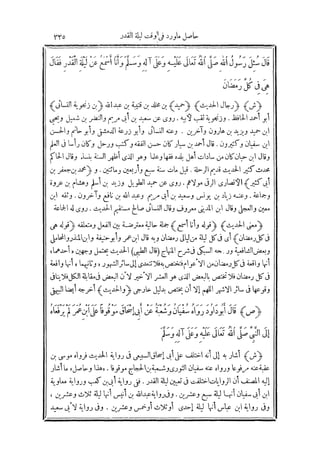 حاصل ماورد فى وقت ليلة القدر ٣٣٥
قَالَ سُئِلَ رَسُولُ اللهِ صَلَّى اللهُ تَعَالَى عَلَيْهِ وَعَلَى آلِهِ وَسَلَّمَ وَأَنَا أَسْمَعُ عَنْ لَيْلَةِ الْقَدْرِ فَقَالَ
هِىَ فِى كُلِّ رَمَضَانَ
﴿ش﴾ ﴿رجال الحديث﴾ ﴿حميد﴾ بن محمد بن قتيبة بن عبد الله ﴿بن زنجوية النسائى﴾
أبو أحمد الحافظ . وزنجوية لقب لأبيه . روى عن سعيد بن أبى مريم والنضر بن شميل ويحيى
ابن حميد ويزيد بن هارون وآخرين . وعنه النسائى وأبو زرعة الدمشقى وأبو حاتم والحسن
ابن سفيان وكثيرون . قال أحمد بن سيار كان حسن الفقه وكتب ورحل وكان رأسا فى العلم
وقال ابن حبان كان من سادات أهل بلده فقها وعلما وهو الذى أظهر السنة بنسا. وقال الحاكم
محدث كثير الحديث قديم الرحلة . قيل مات سنة سبع وأربعين ومائتين . و ﴿محمد بن جعفر بن
أبى كثير﴾ الأنصارى الزرقى مولاهم . روى عن حميد الطويل وزيد بن أسلم وهشام بن عروة
وجماعة . وعنه زياد بن يونس وسعيد بن أبى مريم وعبد الله بن نافع وآخرون . وثقه ابن
معين والعجلى وقال ابن المدينى معروف وقال النسائى صالح مستقيم الحديث . روى له الجماعة
﴿معنى الحديث﴾ ﴿قوله وأنا أسمع﴾ جملة حالية معترضة بين الفعل ومتعلقه ﴿قوله هى
فى كل رمضان﴾ أى فى كل ليلة من ليالى رمضان وبه قال ابن عمر وأبو حنيفة وابن المنذر والمحاملى
وبعض الشافعية ورجحه السبكى فى شرح المنهاج ﴿قال الطيبى﴾ الحديث يحتمل وجهين ، أحدهما
أنها واقعة فى كل رمضان من الأعوام فتختص به فلا تتعدى إلى سائر الشهور ، وثانيهما ، أنها واقعة
فى كل رمضان فلا تختص بالبعض الذى هو العشر الأخير لأن البعض فى مقابلة الكل فلا ينافى
وقوعها فى سائر الأشهر اللهم إلا أن يختص بدليل خارجى ﴿والحديث﴾ أخرجه أيضا البيهقى
﴿ص﴾ قَالَ أَبُو دَاوُدَ رَوَاهُ سُفْيَانُ وَشُعْبَةُ عَنْ أَبِى إِسْحَاقَ مَوْقُوفًا عَلَى ابْنِ عُمَرَ لَمْ يَرْفَعَاهُ
إِلَى النَّبِىِّ صَلَّى اللهُ تَعَالَى عَلَيْهِ وَعَلَى آلِهِ وَسَلَّمَ
﴿ش﴾ أشار به إلى أنه اختلف على أبى إسحاق السبيعى فى رواية الحديث فرواه موسى بن
عقبة عنه مرفوعا ورواه عنه سفيان الثورى وشعبة بن الحجاج موقوفا . هذا وحاصل، ما أشار
إليه المصنف أن الروايات اختلفت فى تعيين ليلة القدر . فنى رواية أبى بن كعب ورواية معاوية
ابن أبى سفيان أنها ليلة سبع وعشرين . وفى رواية عبد الله بن أنيس أنها ليلة ثلاث وعشرين ،
وفى رواية ابن عباس أنها ليلة إحدى أو ثلاث أو خمس وعشرين . وفى رواية لأبى سعيد